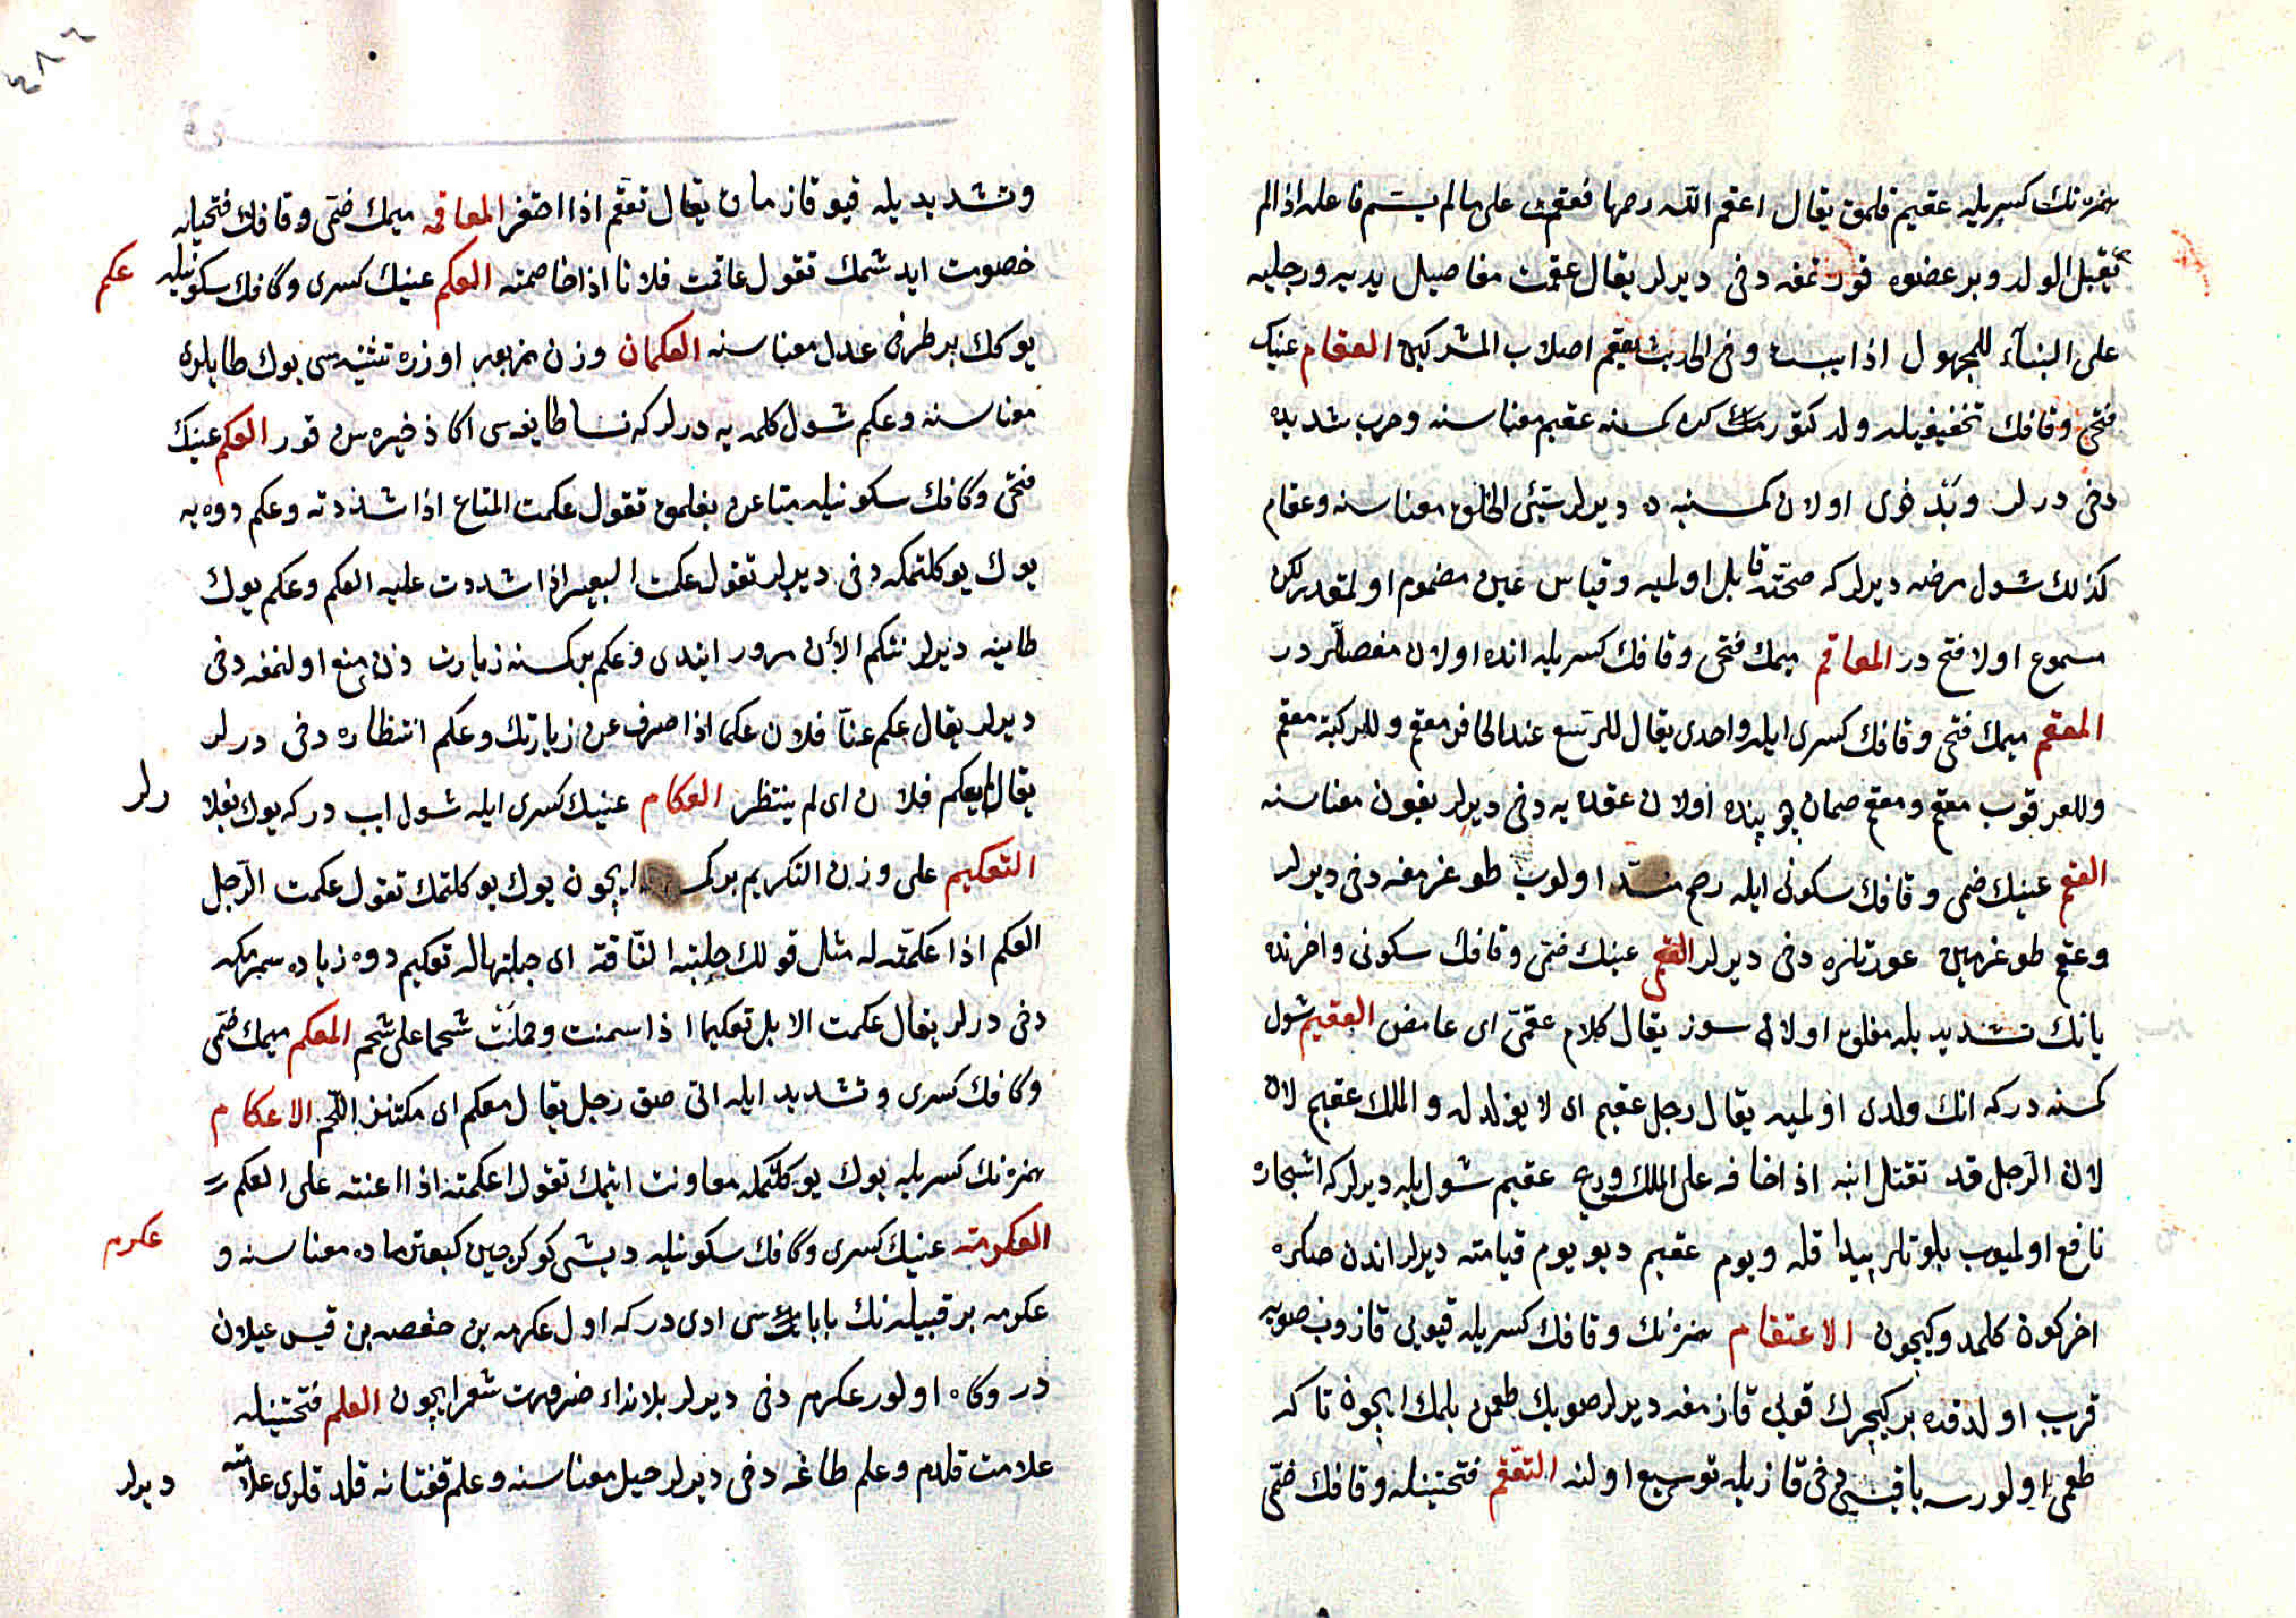 همزه نك كسريله عقيم قلمق يقال اعقم الله رحمها فعقمت على ما لم يسم فاعله اذا لم
تقبل الولد وبر عضوه قورتمغه دخى ديرلر يقال عقمت مفاصل يديه ورجليه
على البناء للمجهول اذا يبست وفى الحديث تعقم اصلاب المشركين العقام عينك
فتحى وقافك تخفيفيله ولد كتورمك كسنه عقيم معناسنه وحرب شديده
دخى درلر وبد خوى اولان كمسنيه ده ديرلر سيئ الخلق معناسنه وعقام
كذلك شول مرضه ديرلر كه صحته قابل اولميه وقياس عين مضموم اولمقدر لكن
مسموع اولا فتح در المعاقم ميمك فتحى وقافك كسريله انده اولان مفصللر در
المعقم ميمك فتحى وقافك كسرى ايله واحدى يقال للرسغ عند الحافر معقم وللركبة معقم
وللعرقوب معقم ومعقم صمان بوينده اولان عقده يه دخى ديرلر بغون معناسنه
العقم عينك ضمى وقافك سكونى ايله رحم منسد اولوب طوغرمغه دخى ديرلر
وعقم طوغرمين عورتلره دخى ديرلر العقمى عينك ضمى وقافك سكونى واخرنده
يانك تشديديله مغلق اولان سوز يقال كلام عقمى اى غامض العقيم شول
كمسنه در كه انك ولدى اولميه يقال رجل عقيم اى لا يولد له والملك عقيم لان
لان الرجل قد تقتل ابنه اذا خافه على الملك وريح عقيم شول يله ديرلر كه اشجاره
نافع اولميوب بلوتلر پيدا قله ويوم عقيم ديو يوم قيامته ديرلر اندن صكره
اخر كون كلمدوكيچون الاعتقام همزه نك وقافك كسريله قيويى قازوب صويه
قريب اولدقده بر كيچرك قويى قازمغه ديرلر صويك طعمن بلمك ايچون تا كه
طعمى اولورسه باقيسنى دخى قازيله توسيع اولنه التعقم فتحتينله وقافك ضمى
وتشديديله قيو قازمان يقال تعقم اذا احتفر المعاقمه ميمك ضمى وقافك فتحيله
خصومت ايدشمك تقول عاقمت فلانا اذا خاصمته العكم عينك كسرى وكافك سكونيله
عكم
يوكك بر طرفى عدل معناسنه العكمان وزن مزبور اوزره تثنيه سى يوك طايلرى
معناسنه وعكم شول كلمه يه درلر كه نسا طايفه سى اكا ذخيره سن قور العكم عينك
فتحى وكافك سكونيله متاعن بغلمق تقول عكمت المتاع اذا شددته وعكم دوه يه
يوك يوكلتمكه دخى ديرلر تقول عكمت البعير اذا شددت عليه العكم وعكم يوك
طاينه ديرلر نتكم الآن مرور ايندى وعكم بر كسنه زيارت دن منع اولنمغه دخى
ديرلر يقال عكم عنا فلان عكما اذا صرف عن زيارتك وعكم انتظاره دخى درلر
يقال لم يعكم فلان اى لم ينتظر العكام عينك كسرى ايله شول ايب در كه يوك بغلا
رلر
التعكيم على وزن التكريم بر ايچون يوك يوكلتمك تقول عكمت الرجل
العكم اذا عكمته له مثل قولك حلبته الناقة اى حلبتها له تعكيم دوه زياده سمزمكه
دخى درلر يقال عكمت الابل تعكيما اذا سمنت وحملت شحما على شحم المعكم ميمك ضمى
وكافك كسرى وتشديد ايله اتى صق رجل يقال معكم اى مكتنز اللحم الاعكام
همزه نك كسريله يوك يوكلتمكه معاونت اتمك تقول اعكمته اذا اعنته على العكم
العكرمة عينك كسرى وكافك سكونيله ديشى كوكرجين كبوتر ماده معناسنه و
عكرم
عكرمه بر قبيله نك باباسى ادى در كه اول عكرمه بن حفصه بن قيس عيلان
در وكاه اولور عكرم دخى ديرلر بلا نداء ضرورت شعر ايچون العلم فتحتينله
علامت قلدم وعلم طاغه دخى ديرلر جبل معناسنه وعلم قفتانه قلد قلرى علامته
ديرلر